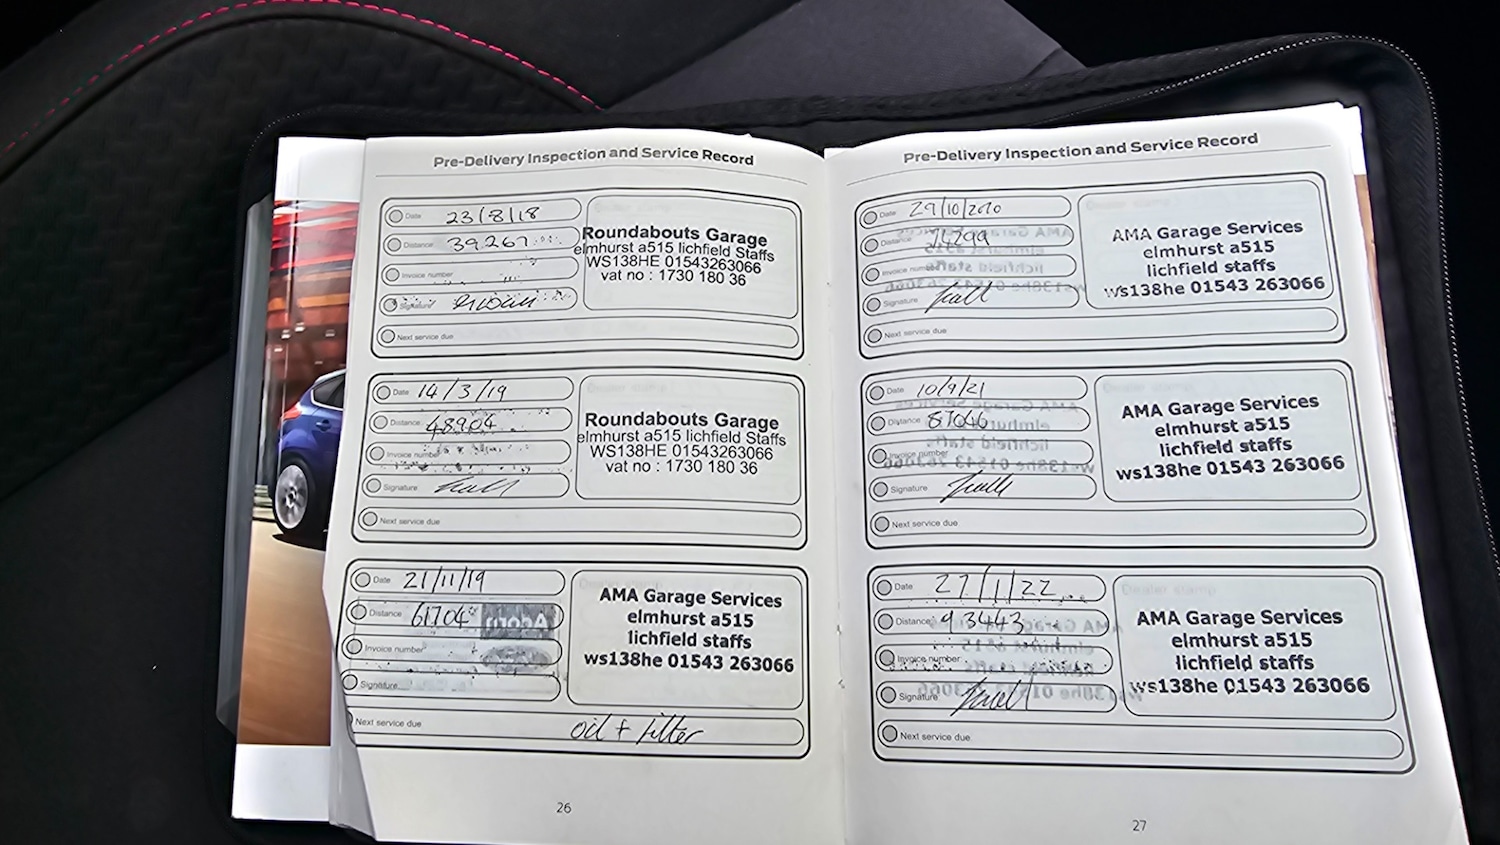 Pre-Delivery Inspection and Service Record
Date 23/8/18
Distance 39267
Invoice number
Signature
Next service due
Roundabouts Garage
elmhurst a515 lichfield Staffs
WS138HE 01543263066
vat no : 1730 180 36
Date 14/3/19
Distance 48904
Invoice number
Signature
Next service due
Roundabouts Garage
elmhurst a515 lichfield Staffs
WS138HE 01543263066
vat no : 1730 180 36
Date 21/11/19
Distance 61704
Invoice number
Signature
Next service due oil + filter
AMA Garage Services
elmhurst a515
lichfield staffs
ws138he 01543 263066
26
Pre-Delivery Inspection and Service Record
Date 29/10/2020
Distance 74299
Invoice number
Signature
Next service due
AMA Garage Services
elmhurst a515
lichfield staffs
ws138he 01543 263066
Date 10/9/21
Distance 87046
Invoice number
Signature
Next service due
AMA Garage Services
elmhurst a515
lichfield staffs
ws138he 01543 263066
Date 27/1/22
Distance 93443
Invoice number
Signature
Next service due
AMA Garage Services
elmhurst a515
lichfield staffs
ws138he 01543 263066
27